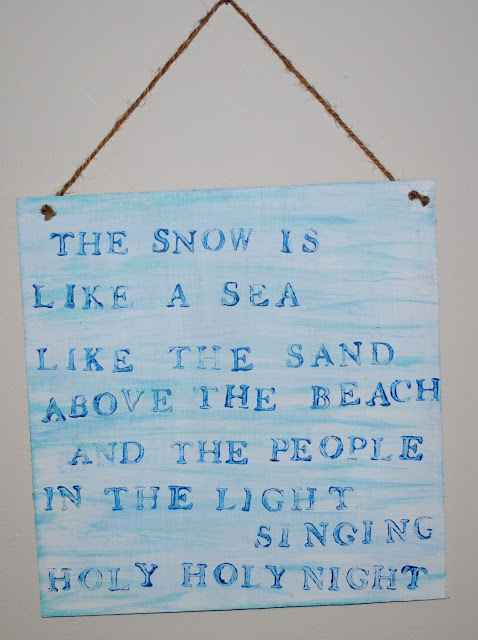 THE SNOW IS
LIKE A SEA
LIKE THE SAND
ABOVE THE BEACH
AND THE PEOPLE
IN THE LIGHT
SINGING
HOLY HOLY NIGHT